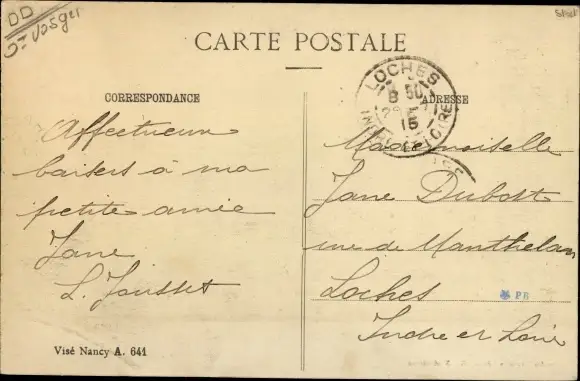 DD
St Vosges
CARTE POSTALE
CORRESPONDANCE
ADRESSE
LOCHES
8 50
15
INDRE ET LOIRE
Affectueux
baisers à ma
petite amie
Jane
L. Jousset
Mademoiselle
Jane Dubost
rue de Manthelan
Loches
Indre et Loire
PB
Visé Nancy A. 641